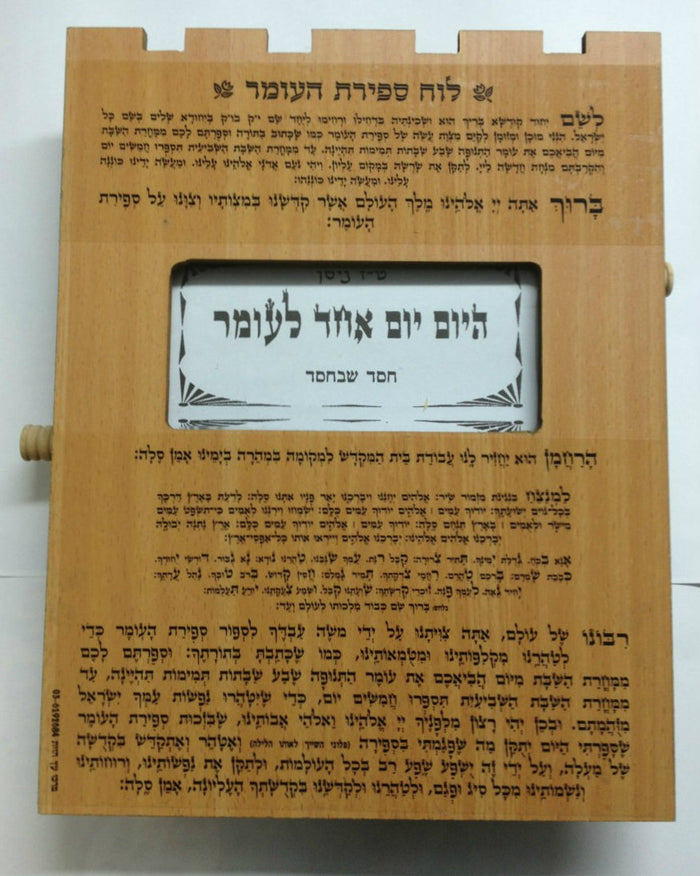 לוח ספירת העומר
לְשֵׁם יחוד קודשא בריך הוא ושכינתיה בדחילו ורחימו ליחד שם י״ק בו״ק ביחודא שלים בשם כל
ישראל. הנני מוכן ומזומן לקיים מצות עשה של ספירת העומר כמו שכתוב בתורה וספרתם לכם ממחרת השבת
מיום הביאכם את עומר התנופה שבע שבתות תמימות תהיינה. עד ממחרת השבת השביעית תספרו חמשים יום
והקרבתם מנחה חדשה ליי. לתקן את שרשה במקום עליון. ויהי נעם אדני אלהינו עלינו. ומעשה ידינו כוננה
עלינו. ומעשה ידינו כוננהו:
בָּרוּךְ אתה יי אלהינו מלך העולם אשר קדשנו במצותיו וצונו על ספירת
העומר:
ט״ז ניסן
היום יום אחד לעומר
חסד שבחסד
הרחמן הוא יחזיר לנו עבודת בית המקדש למקומה במהרה בימינו אמן סלה:
למנצח בנגינת מזמור שיר: אלהים יחננו ויברכנו יאר פניו אתנו סלה: לדעת בארץ דרכך
בכל־גוים ישועתך: יודוך עמים | אלהים יודוך עמים כלם: ישמחו וירננו לאמים כי־תשפט עמים
מישר ולאמים | בארץ תנחם סלה: יודוך עמים | אלהים יודוך עמים כלם: ארץ נתנה יבולה
יברכנו אלהים אלהינו: יברכנו אלהים וייראו אותו כל־אפסי־ארץ:
אנא בכח. גדלת ימינך. תתיר צרורה: קבל רנת. עמך שגבנו. טהרנו נורא: נא גבור. דורשי יחודך.
כבבת שמרם: ברכם טהרם. רחמי צדקתך. תמיד גמלם: חסין קדוש. ברב טובך. נהל עדתך:
יחיד גאה. לעמך פנה. זוכרי קדשתך: שועתנו קבל. ושמע צעקתנו. יודע תעלומות:
בלחש ברוך שם כבוד מלכותו לעולם ועד:
רבונו של עולם, אתה צויתנו על ידי משה עבדך לספור ספירת העומר כדי
לטהרנו מקלפותינו ומטמאותינו, כמו שכתבת בתורתך: וספרתם לכם
ממחרת השבת מיום הביאכם את עומר התנופה שבע שבתות תמימות תהיינה, עד
ממחרת השבת השביעית תספרו חמשים יום, כדי שיטהרו נפשות עמך ישראל
מזהמתם. ובכן יהי רצון מלפניך יי אלהינו ואלהי אבותינו, שבזכות ספירת העומר
שספרתי היום יתקן מה שפגמתי בספירה (פלוני השייך לאותו הלילה) ואטהר ואתקדש בקדשה
של מעלה, ועל ידי זה יושפע שפע רב בכל העולמות, ולתקן את נפשותינו, ורוחותינו
ונשמותינו מכל סיג ופגם, ולטהרנו ולקדשנו בקדשתך העליונה, אמן סלה: